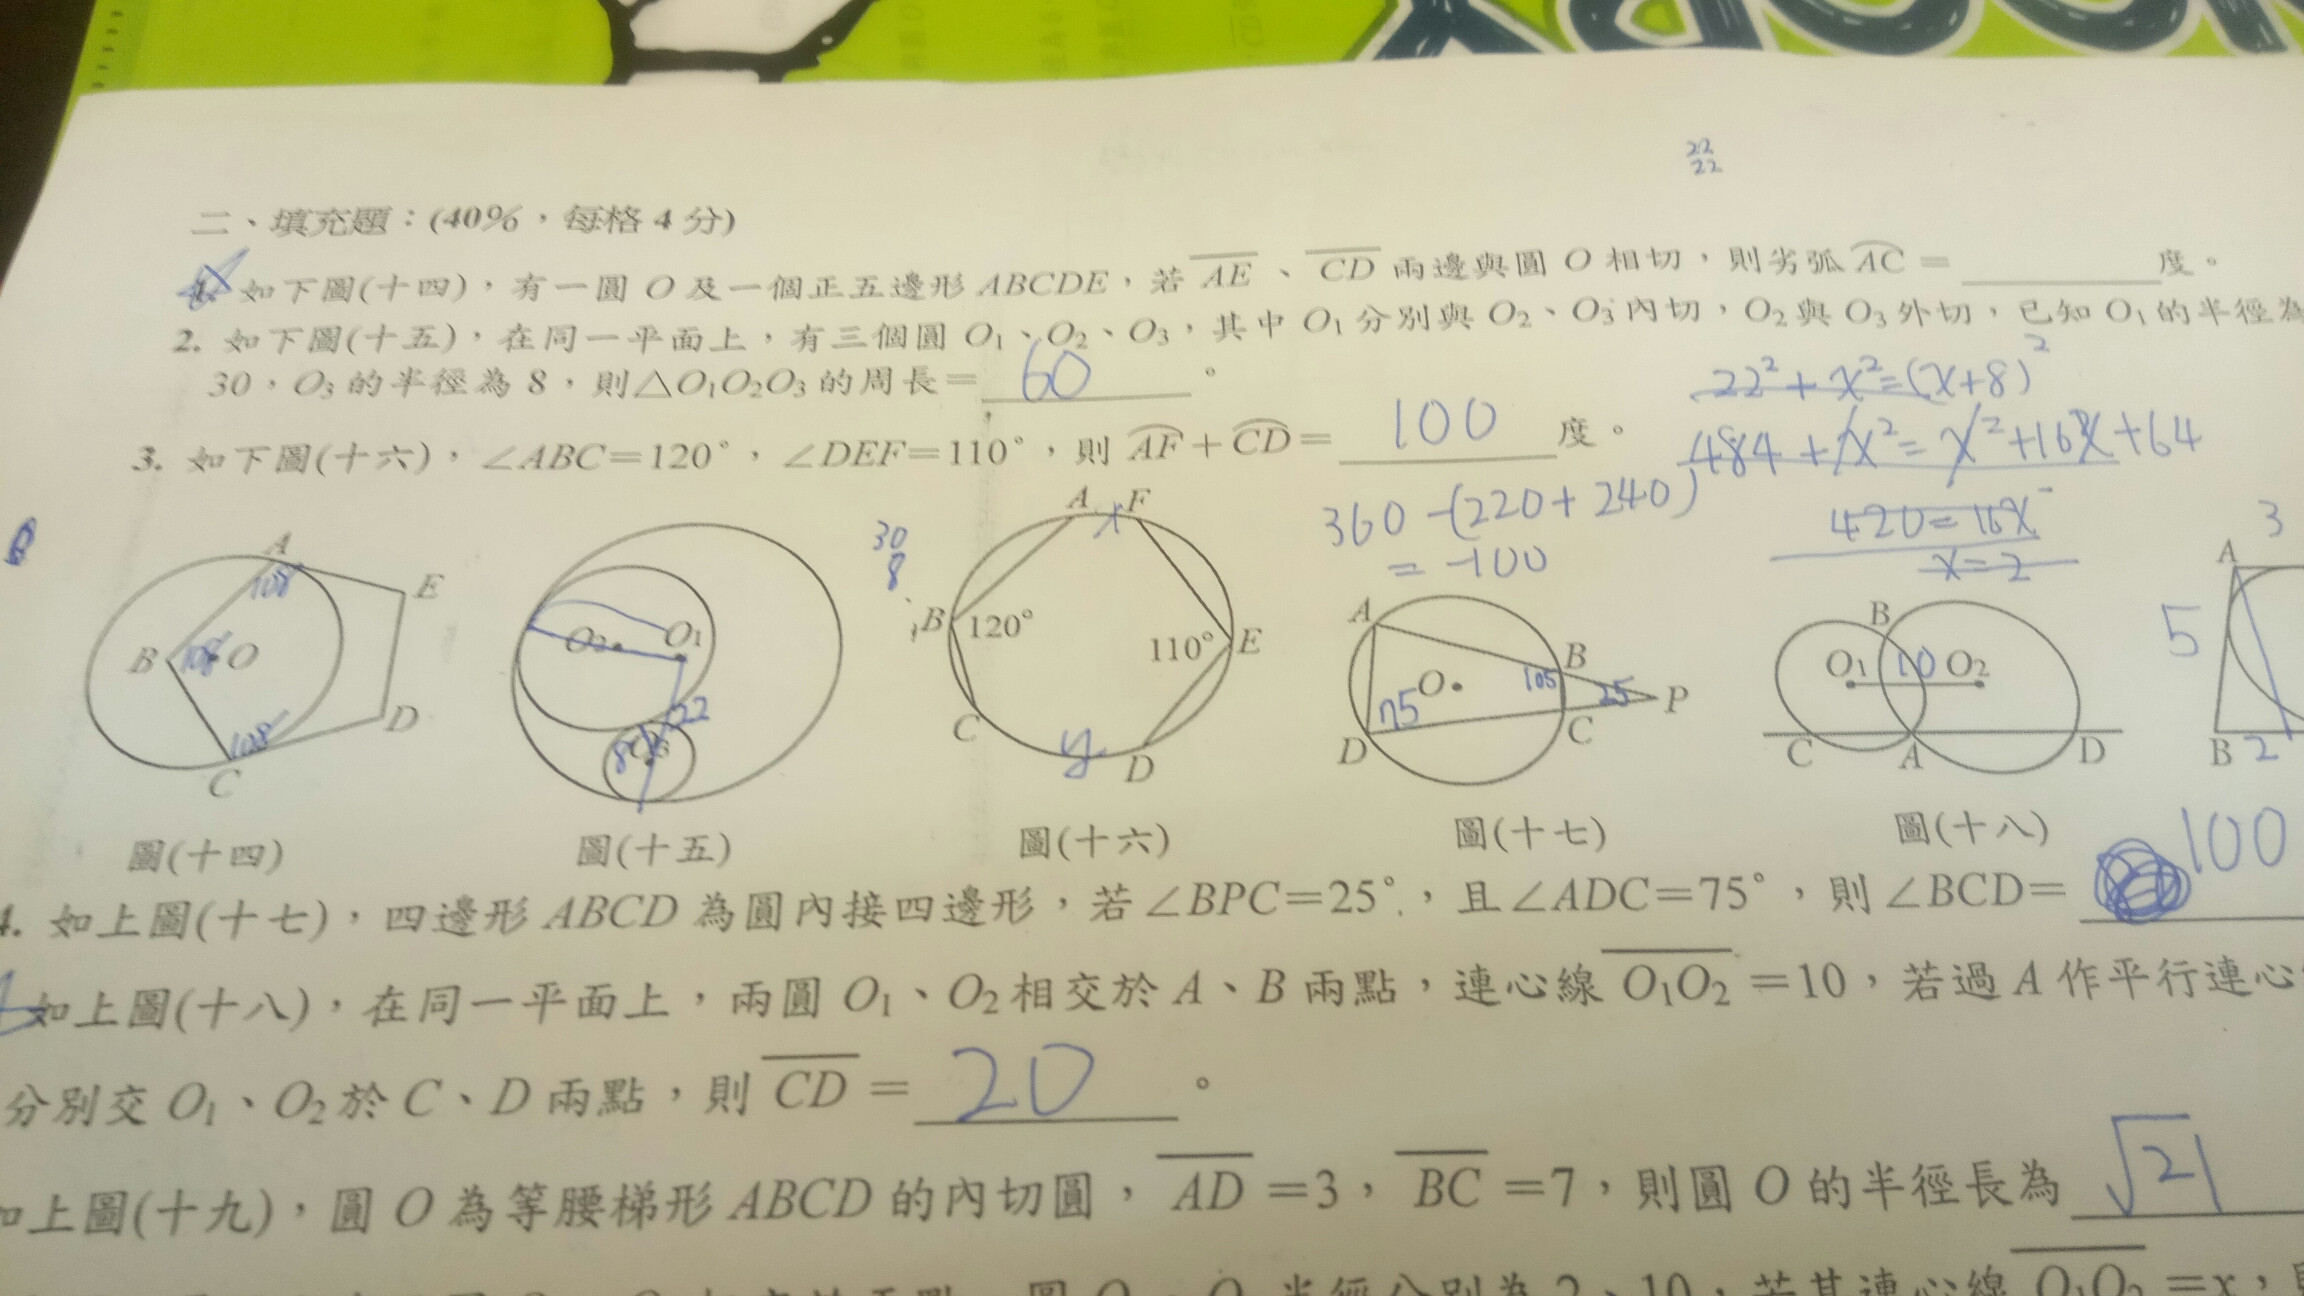 22
22
二、填充題：(40%，每格 4 分)
1. 如下圖(十四)，有一圓 O 及一個正五邊形 ABCDE，若 AE、CD 兩邊與圓 O 相切，則劣弧 AC = 度。
2. 如下圖(十五)，在同一平面上，有三個圓 O₁、O₂、O₃，其中 O₁ 分別與 O₂、O₃ 內切，O₂ 與 O₃ 外切，已知 O₁ 的半徑為
30，O₃ 的半徑為 8，則△O₁O₂O₃ 的周長= 60 。
22² + x² = (x+8)²
3. 如下圖(十六)，∠ABC=120°，∠DEF=110°，則 AF + CD = 100 度。
484 + x² = x² + 16x + 64
360 - (220 + 240)
= -100
420 = 16x
x = 2
A E B O C D 108 108 108
O₂ O₁ 22 8 O₃
30
8
A x F B 120° 110° E C y D
A B O 105 25 P 75 D C
B O₁ 10 O₂ C A D
3 A 5 B 2
圖(十四) 圖(十五) 圖(十六) 圖(十七) 圖(十八)
4. 如上圖(十七)，四邊形 ABCD 為圓內接四邊形，若∠BPC=25°，且∠ADC=75°，則∠BCD= 100
如上圖(十八)，在同一平面上，兩圓 O₁、O₂ 相交於 A、B 兩點，連心線 O₁O₂ =10，若過 A 作平行連心
分別交 O₁、O₂ 於 C、D 兩點，則 CD = 20 。
如上圖(十九)，圓 O 為等腰梯形 ABCD 的內切圓，AD =3，BC =7，則圓 O 的半徑長為 √21
半徑分別為 2、10，若其連心線 O₁O₂ =x，